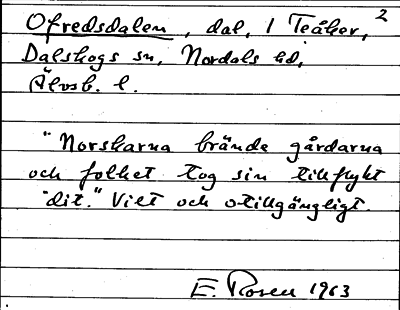 Ofredsdalen, dal, 1 Teåker, 2
Dalskogs sn, Nordals hd,
Älvsb. l.
"Norskarna brände gårdarna
och folket tog sin tillflykt
dit." Vilt och otillgängligt.
E. Rosen 1963